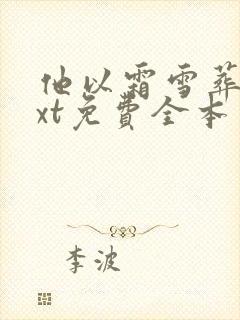 他以霜雪葬
xt免費全本
李波